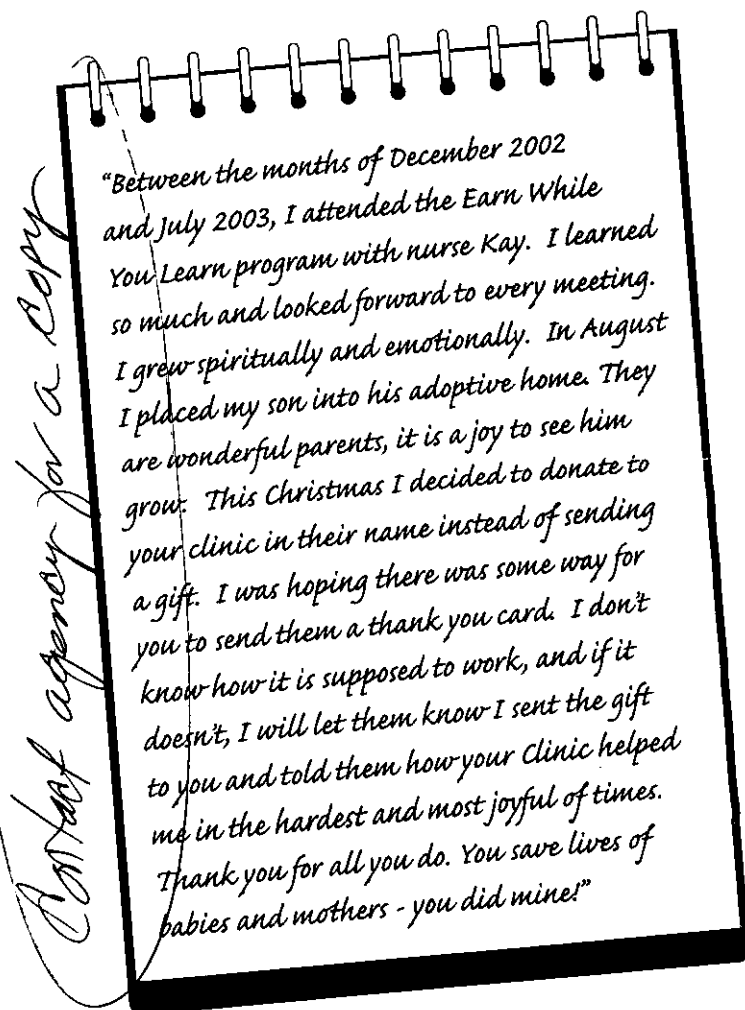 "Between the months of December 2002
and July 2003, I attended the Earn While
You Learn program with nurse Kay.  I learned
so much and looked forward to every meeting.
I grew spiritually and emotionally.  In August
I placed my son into his adoptive home. They
are wonderful parents, it is a joy to see him
grow.  This Christmas I decided to donate to
your clinic in their name instead of sending
a gift.  I was hoping there was some way for
you to send them a thank you card.  I don't
know how it is supposed to work, and if it
doesn't, I will let them know I sent the gift
to you and told them how your Clinic helped
me in the hardest and most joyful of times.
Thank you for all you do. You save lives of
babies and mothers - you did mine!"
Contact agency for a copy